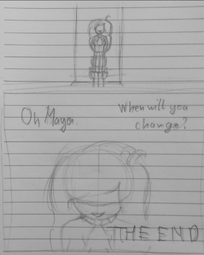 Oh Maya.
When will you
change?
THE END